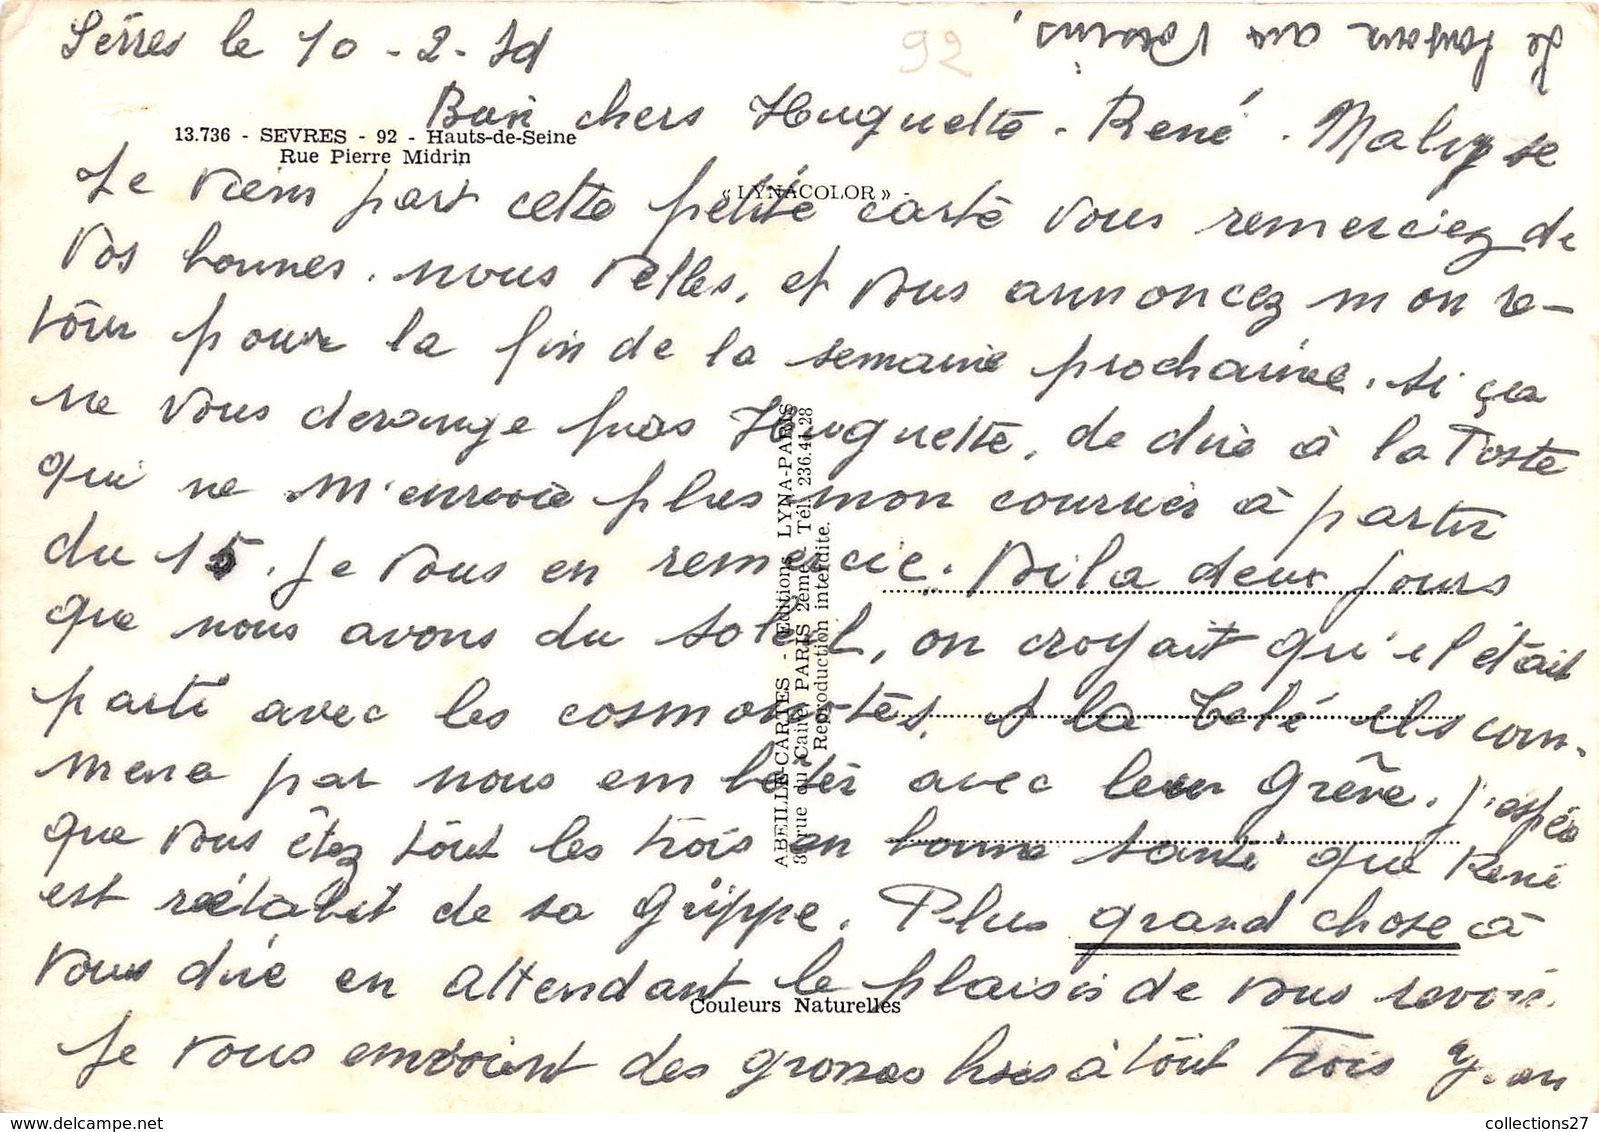 le 10 - 2 -
92
Bien chers Huguette. René.
13.736 - SEVRES - 92 - Hauts-de-Seine
Rue Pierre Midrin
« LYNACOLOR »
Je viens part cette petite carte vous remerciez de
vos bonnes. nous velles, et vous annoncez mon re-
tour pour la fin de la semaine prochaine. si ça
ne vous derange pas Huguette, de dire à la Poste
qui ne m'envoie plus mon courrier à partir
du 15. je vous en remercie. Voila deux jours
que nous avons du soleil, on croyait qu'il était
parti avec les cosmonotes. A la Télé ils com-
mence par nous em beter avec leur Grêve. j'espère
que vous êtez tout les trois en bonne santé que René
est de sa Grippe. Plus grand chose à
vous dire en attendant le plaisir de vous revoir.
Je vous envoient des grosses bises à tout trois
ABEILLE-CARTES - Editions LYNA-PARIS
8, rue du Caire, PARIS 2ème Tél. 236.41.28
Reproduction interdite.
Couleurs Naturelles
Le bonjour au Voisins.
collections27